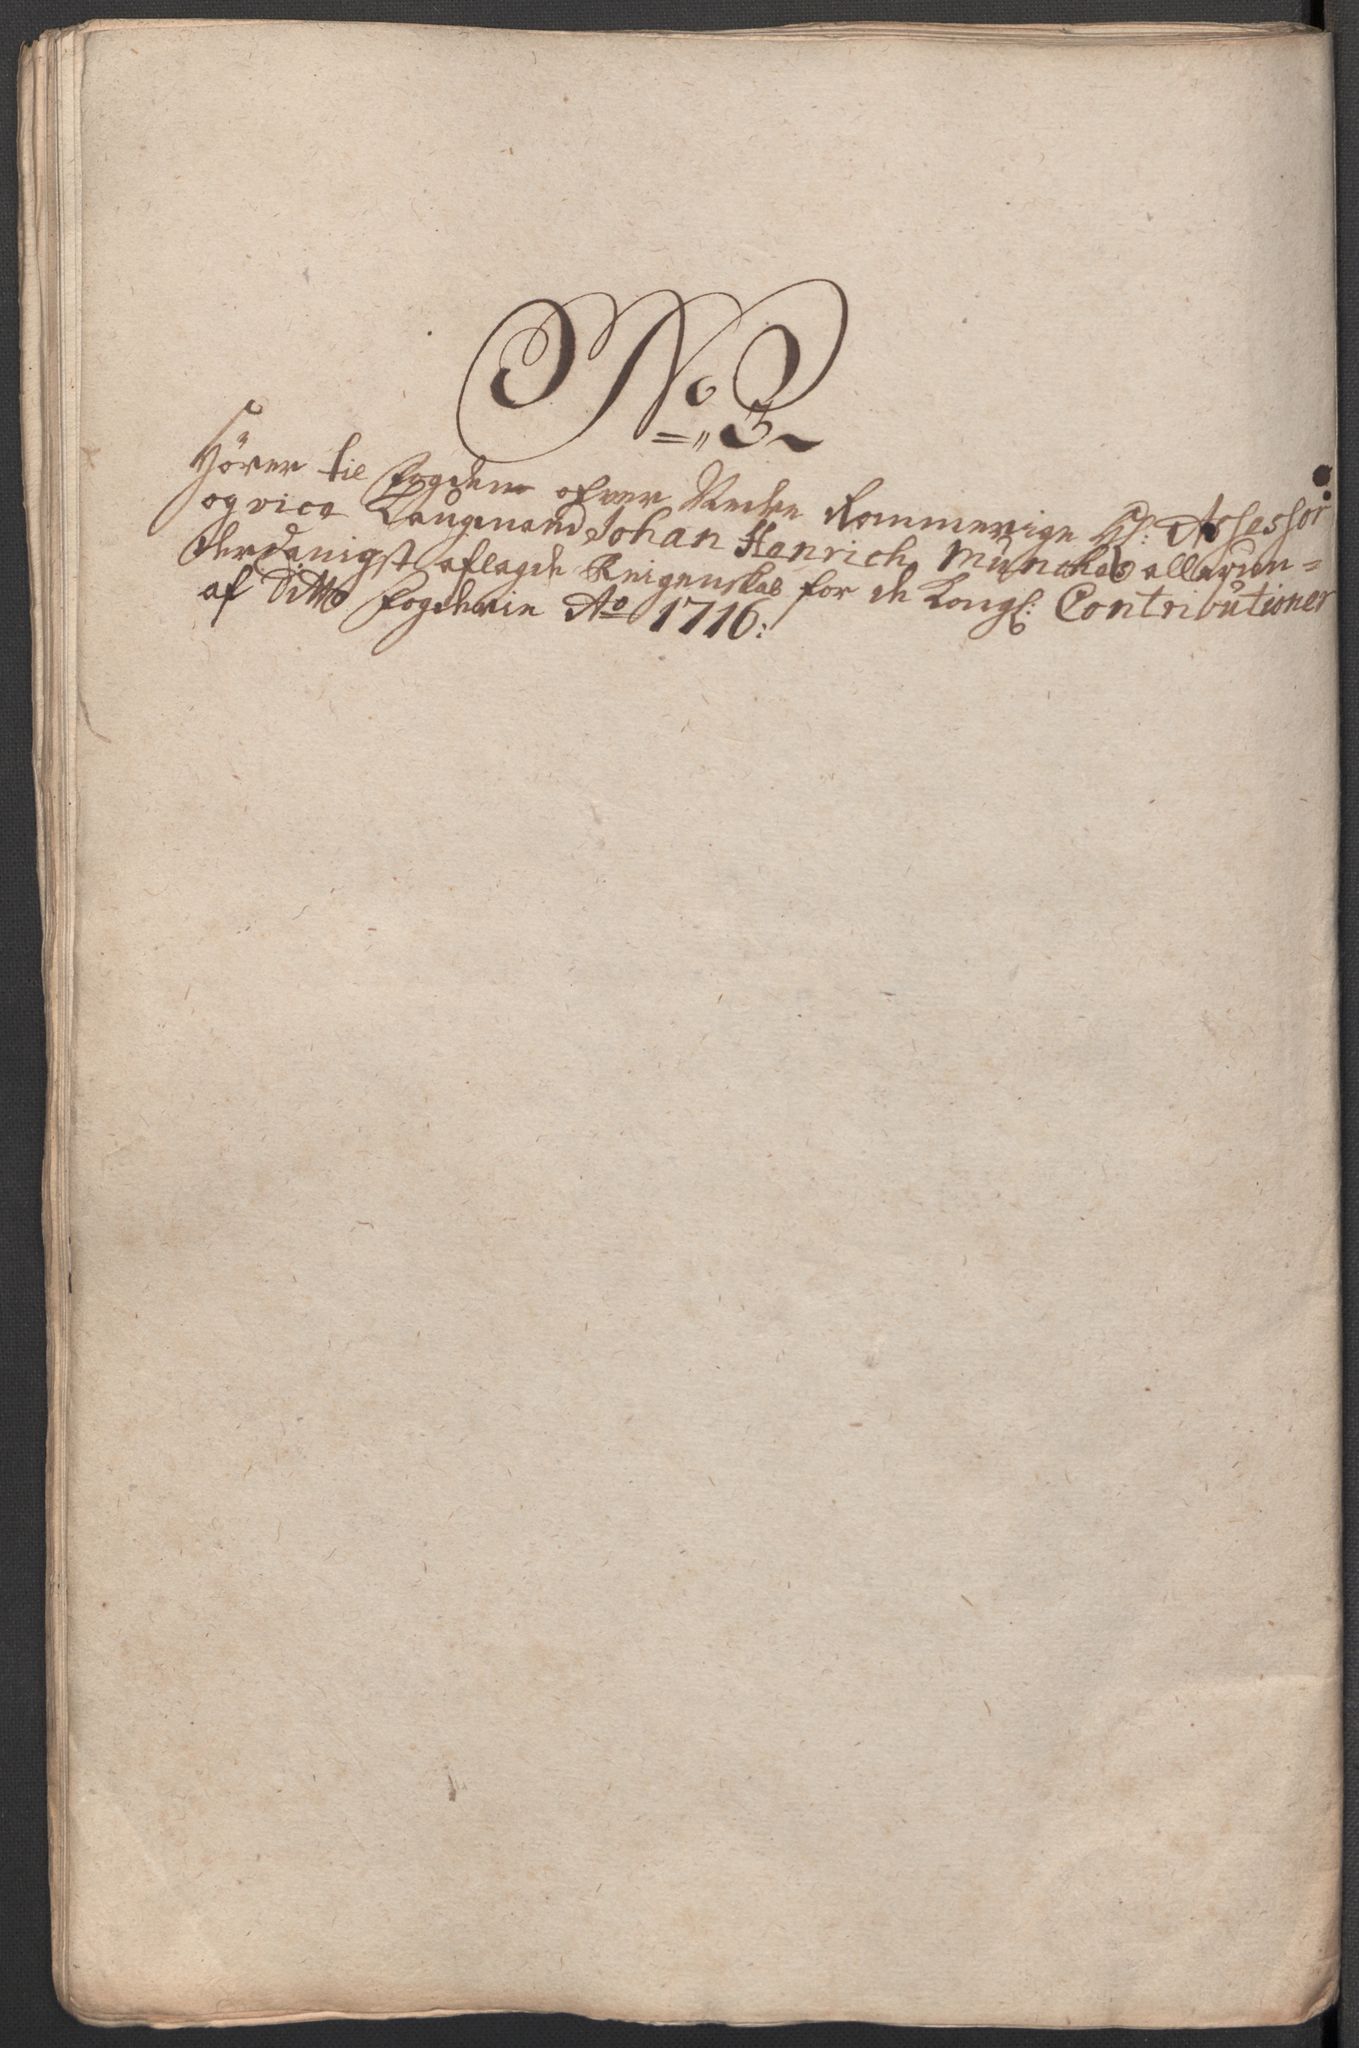 No. 3
Hörer til fogden ofver Nedre Rommerige Hr: Assessor
og vice Laugmand Johan Henrich Münches allerun-
derdanigst aflagde Reigenskab for de Kongl: Contributioner
af ditto fogderie Ao 1716: